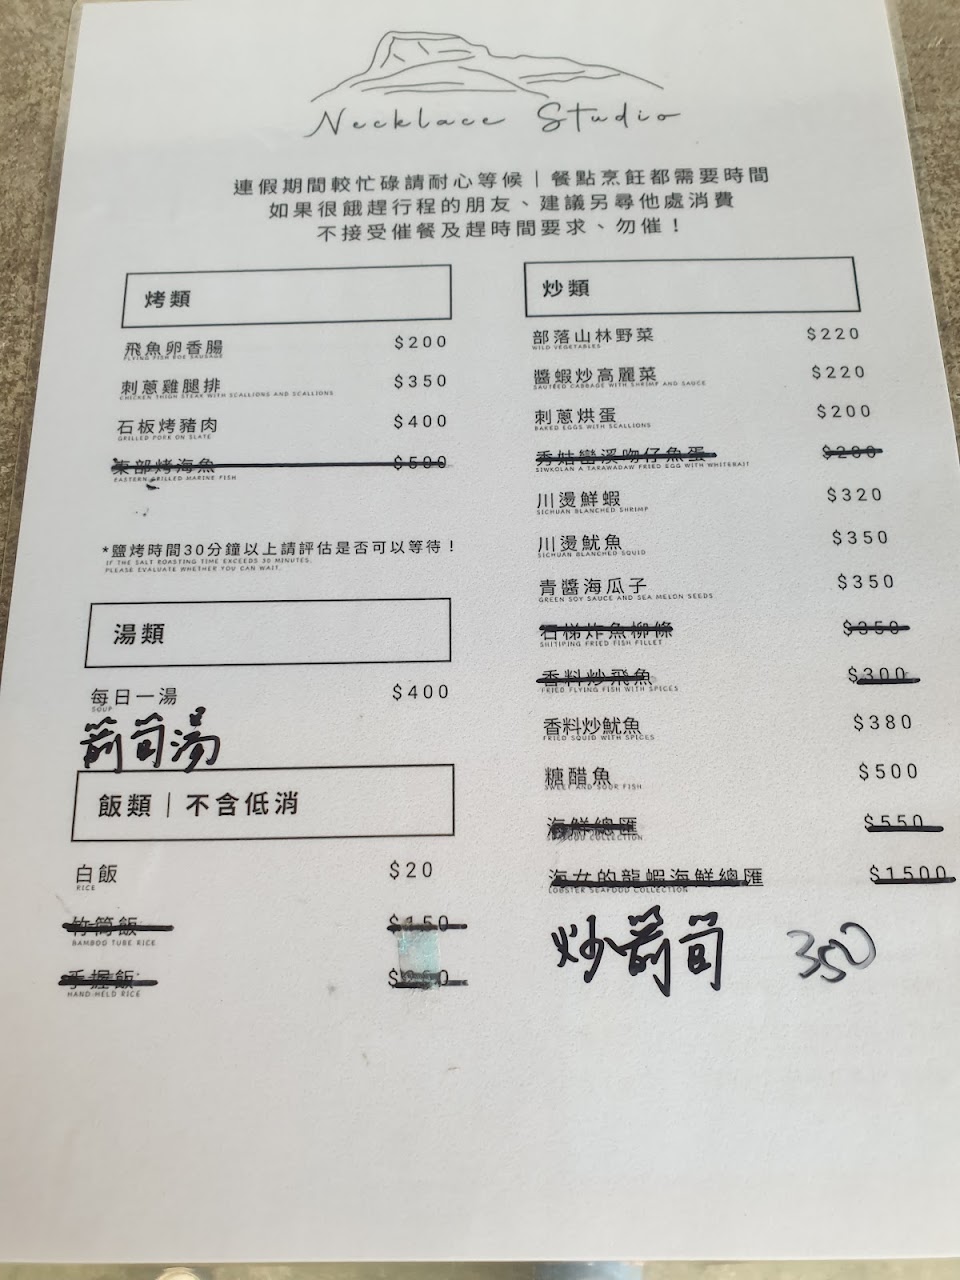 Necklace Studio
連假期間較忙碌請耐心等候｜餐點烹飪都需要時間
如果很餓趕行程的朋友、建議另尋他處消費
不接受催餐及趕時間要求、勿催！
烤類
飛魚卵香腸 $200
FLYING FISH ROE SAUSAGE
刺蔥雞腿排 $350
CHICKEN THIGH STEAK WITH SCALLIONS AND SCALLIONS
石板烤豬肉 $400
GRILLED PORK ON SLATE
東部烤海魚 $500
EASTERN GRILLED MARINE FISH
*鹽烤時間30分鐘以上請評估是否可以等待！
IF THE SALT ROASTING TIME EXCEEDS 30 MINUTES.
PLEASE EVALUATE WHETHER YOU CAN WAIT.
湯類
每日一湯 $400
SOUP
箭筍湯
飯類｜不含低消
白飯 $20
RICE
竹筒飯 $150
BAMBOO TUBE RICE
手握飯
HAND-HELD RICE
炒類
部落山林野菜 $220
WILD VEGETABLES
醬蝦炒高麗菜 $220
SAUTEED CABBAGE WITH SHRIMP AND SAUCE
刺蔥烘蛋 $200
BAKED EGGS WITH SCALLIONS
秀姑巒溪吻仔魚蛋 $200
SIWKOLAN A TARAWADAW FRIED EGG WITH WHITEBAIT
川燙鮮蝦 $320
SICHUAN BLANCHED SHRIMP
川燙魷魚 $350
SICHUAN BLANCHED SQUID
青醬海瓜子 $350
GREEN SOY SAUCE AND SEA MELON SEEDS
石梯炸魚柳條 $350
SHITIPING FRIED FISH FILLET
香料炒飛魚 $300
FRIED FLYING FISH WITH SPICES
香料炒魷魚 $380
FRIED SQUID WITH SPICES
糖醋魚 $500
SWEET AND SOUR FISH
海鮮總匯 $550
SEAFOOD COLLECTION
海女的龍蝦海鮮總匯 $1500
LOBSTER SEAFOOD COLLECTION
炒箭筍 350